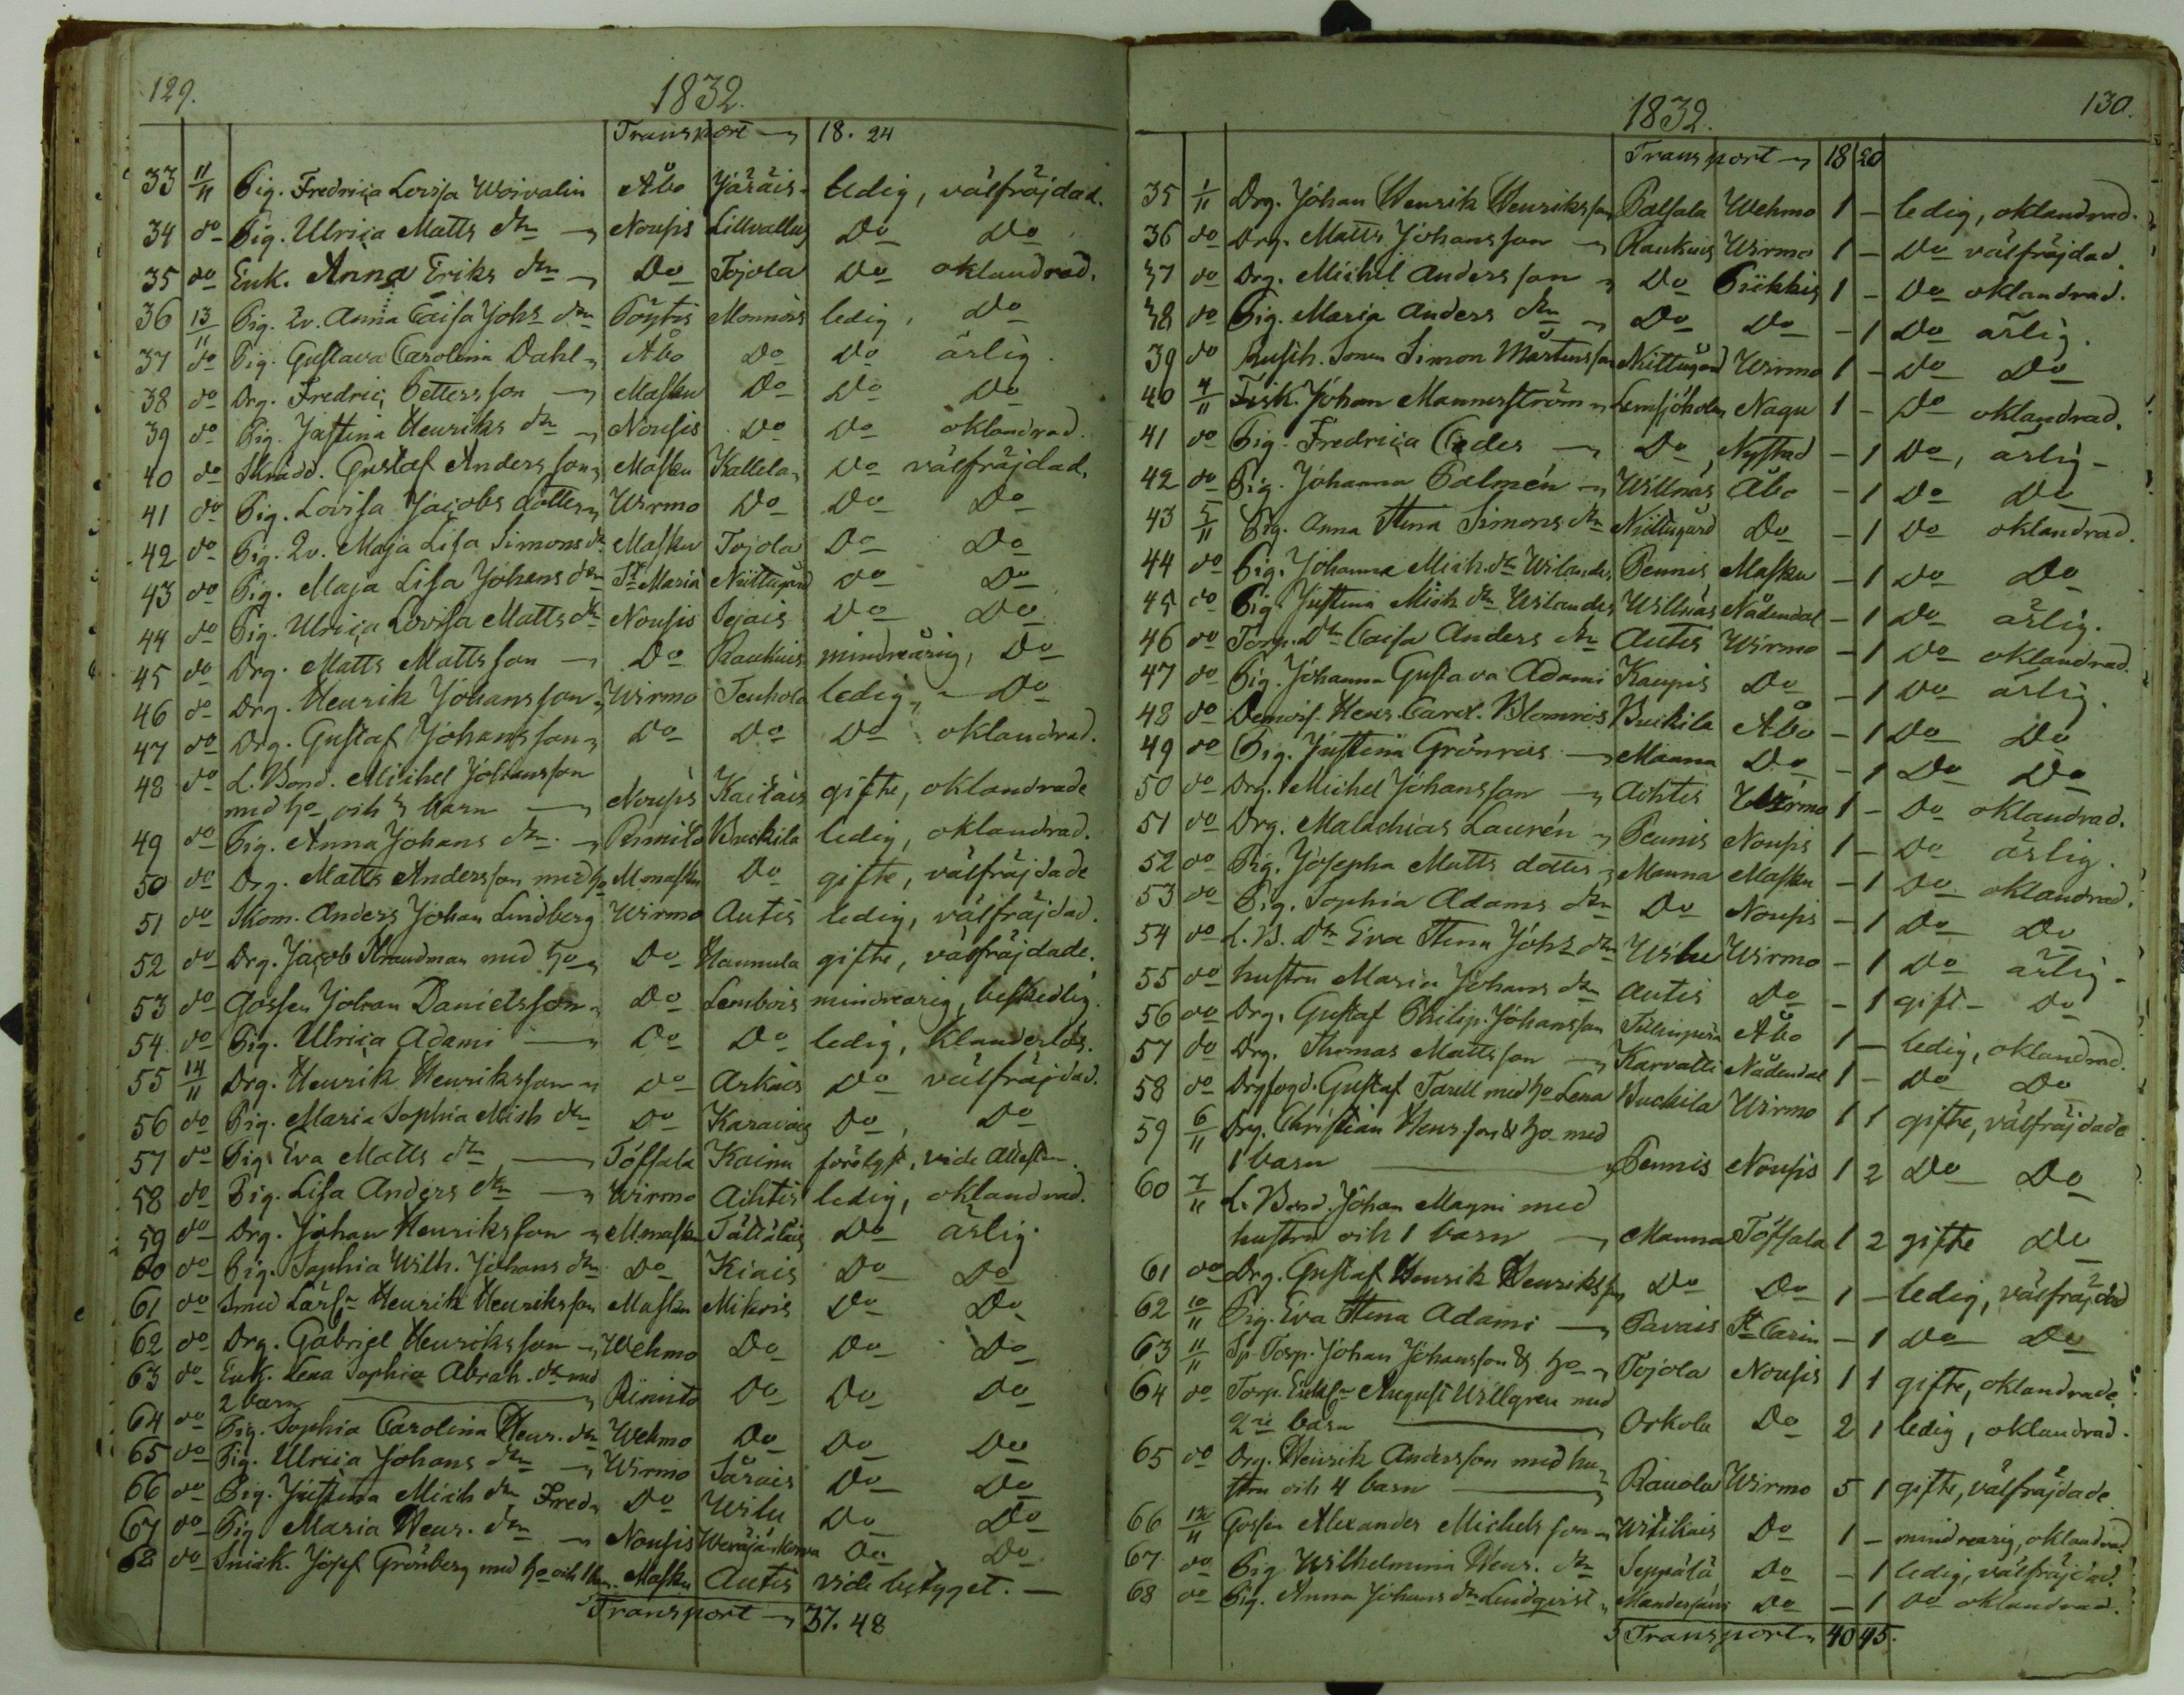 129.
1832.
Transport 18. 24
33 11/11 Pig. Fredrica Lovisa Woivalin Åbo Järäis ledig, välfräjdad.
34 do Pig. Ulrica Matts dtr Nousis Lillvallus Do Do
35 do Enk. Anna Eriks dtr Do Tojola Do oklandrad.
36 13/11 Pig. 2v. Anna Caisa Johs dtr Pöytis Monnois ledig, Do
37 do Pig. Gustava Carolina Dahl Åbo Do Do ärlig.
38 do Drg. Fredric Pettersson Masku Do Do Do
39 do Pig. Justina Henriks dtr Nousis Do Do oklandrad.
40 do Skrädd. Gustaf Andersson Masku Kallela Do välfräjdad.
41 do Pig. Lovisa Jacobs dotter Wirmo Do Do Do
42 do Pig. 2v. Maja Lisa Simons dr Masku Tojola Do Do
43 do Pig. Maja Lisa Johans dtr St Maria Niittugård Do Do
44 do Pig. Ulrica Lovisa Matts dr Nousis Sejais Do Do
45 do Drg. Matts Mattsson Do Raukuis mindreårig, Do
46 do Drg. Henrik Johansson Wirmo Teuhola ledig, Do
47 do Drg. Gustaf Johansson Do Do Do oklandrad.
48 do L. Bond. Michel Johansson
med ho och 3 barn Nousis Kaitais gifte, oklandrade
49 do Pig. Anna Johans dtr. Rimito Buckila ledig, oklandrad.
50 do Drg. Matts Andersson med ho Monasku Do gifte, välfräjdade
51 do Skom. Anders Johan Lindberg Wirmo Autis ledig, välfräjdad.
52 do Drg. Jacob Strandman med ho Do Hannula gifte, välfräjdade.
53 do Gossen Johan Danielsson Do Lembois mindreårig, beskedlig.
54 do Pig. Ulrica Adami Do Do ledig, klanderlös.
55 14/11 Drg. Henrik Henriksson Do Arkais Do välfräjdad.
56 do Pig. Maria Sophia Mich dtr Do Karavais Do, Do
57 do Pig. Eva Matts dr Töfsala Kainu vide Attesten.
58 do Pig. Lisa Anders dtr Wirmo Achtis ledig, oklandrad.
59 do Drg. Johan Henriksson M.masku Tättäläis Do ärlig.
60 do Pig. Sophia Wilh. Johans dtr Do Kiais Do Do
61 do Smed Lärl. Henrik Henriksson Masku Mikois Do Do
62 do Drg. Gabriel Henriksson Wehmo Do Do Do
63 do Enk. Lena Sophia Abrah. dr med
2 barn Rimito Do Do Do
64 do Pig. Sophia Carolina Henr. dr Wehmo Do Do Do
65 do Pig. Ulrica Johans dtr Wirmo Säräis Do Do
66 do Pig. Justina Mich dtr Fred Do Wilu Do Do
67 do Pig Maria Henr. dtr Nousis Do Do
68 do Snick. Josef Grönberg med ho och 1 barn Masku Autis vide betyget.
Transport 37. 48
130.
1832.
Transport 18 20
35 1/11 Drg. Johan Henrik Henriksson Palsala Wehmo 1 - ledig, oklandrad.
36 do Drg. Matts Johansson Raukuis Wirmo 1 - Do välfräjdad.
37 do Drg. Michel Andersson Do Piikkis 1 - Do oklandrad.
38 do Pig. Maria Anders dtr Do Do - 1 Do ärlig.
39 do Rusth. Sonen Simon Mårtensson Niittugård Wirmo 1 - Do Do
40 4/11 Fisk. Johan Mannerström Lemsjöholm Nagu 1 - Do oklandrad.
41 do Pig. Fredrica Ceder Do Nystad - 1 Do, ärlig
42 do Pig. Johanna Palmén Willnäs Åbo - 1 Do Do
43 5/11 Pig. Anna Stina Simons dtr Niittugård Do - 1 Do oklandrad.
44 do Pig. Johanna Mich. dr Wilander Pennis Masku - 1 Do Do
45 do Pig. Justina Mich dr Wilander Willnäs Nådendal - 1 Do ärlig.
46 do Torp. Dtr Caisa Anders dtr Autis Wirmo - 1 Do oklandrad.
47 do Pig. Johanna Gustava Adami Kaupis Do - 1 Do ärlig.
48 do Demois. Henr. Carol. Blomros Buckila Åbo - 1 Do Do
49 do Pig. Justina Grönroos Manna Do - 1 Do Do
50 do Drg. Michel Johansson Achtis Wirmo 1 - Do oklandrad.
51 do Drg. Malachias Laurén Pennis Nousis 1 - Do ärlig.
52 do Pig. Josepha Matts dotter Manna Masku - 1 Do oklandrad.
53 do Pig. Sophia Adams dtr Do Nousis - 1 Do Do
54 do L. B. Dtr Eva Stina Johs dtr Wilu Wirmo - 1 Do ärlig
55 do hustru Maria Johans dtr Autis Do - 1 gift Do
56 do Drg. Gustaf Philip Johansson Åbo 1 - ledig, oklandrad.
57 do Drg. Thomas Mattsson Karvatti Nådendal 1 - Do Do
58 do Drgfogd. Gustaf Tarell med ho Lena Buckila Wirmo 1 1 gifte, välfräjdade
59 6/11 Drg. Christian Henr.son & ho med
1 barn Pennis Nousis 1 2 Do Do
60 7/11 L. Bond. Johan Magni med
hustru och 1 barn Manna Töfsala 1 2 gifte Do
61 do Drg. Gustaf Henrik Henriksson Do Do 1 - ledig, välfräjdad
62 10/11 Pig. Eva Stina Adami Pavais St Carin - 1 Do Do
63 11/11 Sp. Torp. Johan Johansson & ho Tojola Nousis 1 1 gifte, oklandrade.
64 do Torp. Enkl. August Willgren med
2ne barn Orkola Do 2 1 ledig, oklandrad.
65 do Drg. Henrik Andersson med hu-
stru och 4 barn Rauola Wirmo 5 1 gifte, välfräjdade.
66 12/11 Gossen Alexander Michelsson Wiikiais Do 1 - mindreårig, oklandrad
67 do Pig Wilhelmina Henr. dtr Seppälä Do - 1 ledig, välfräjdad.
68 do Pig. Anna Johans dr Lindqvist Do - 1 Do oklandrad.
Transport 40 45.